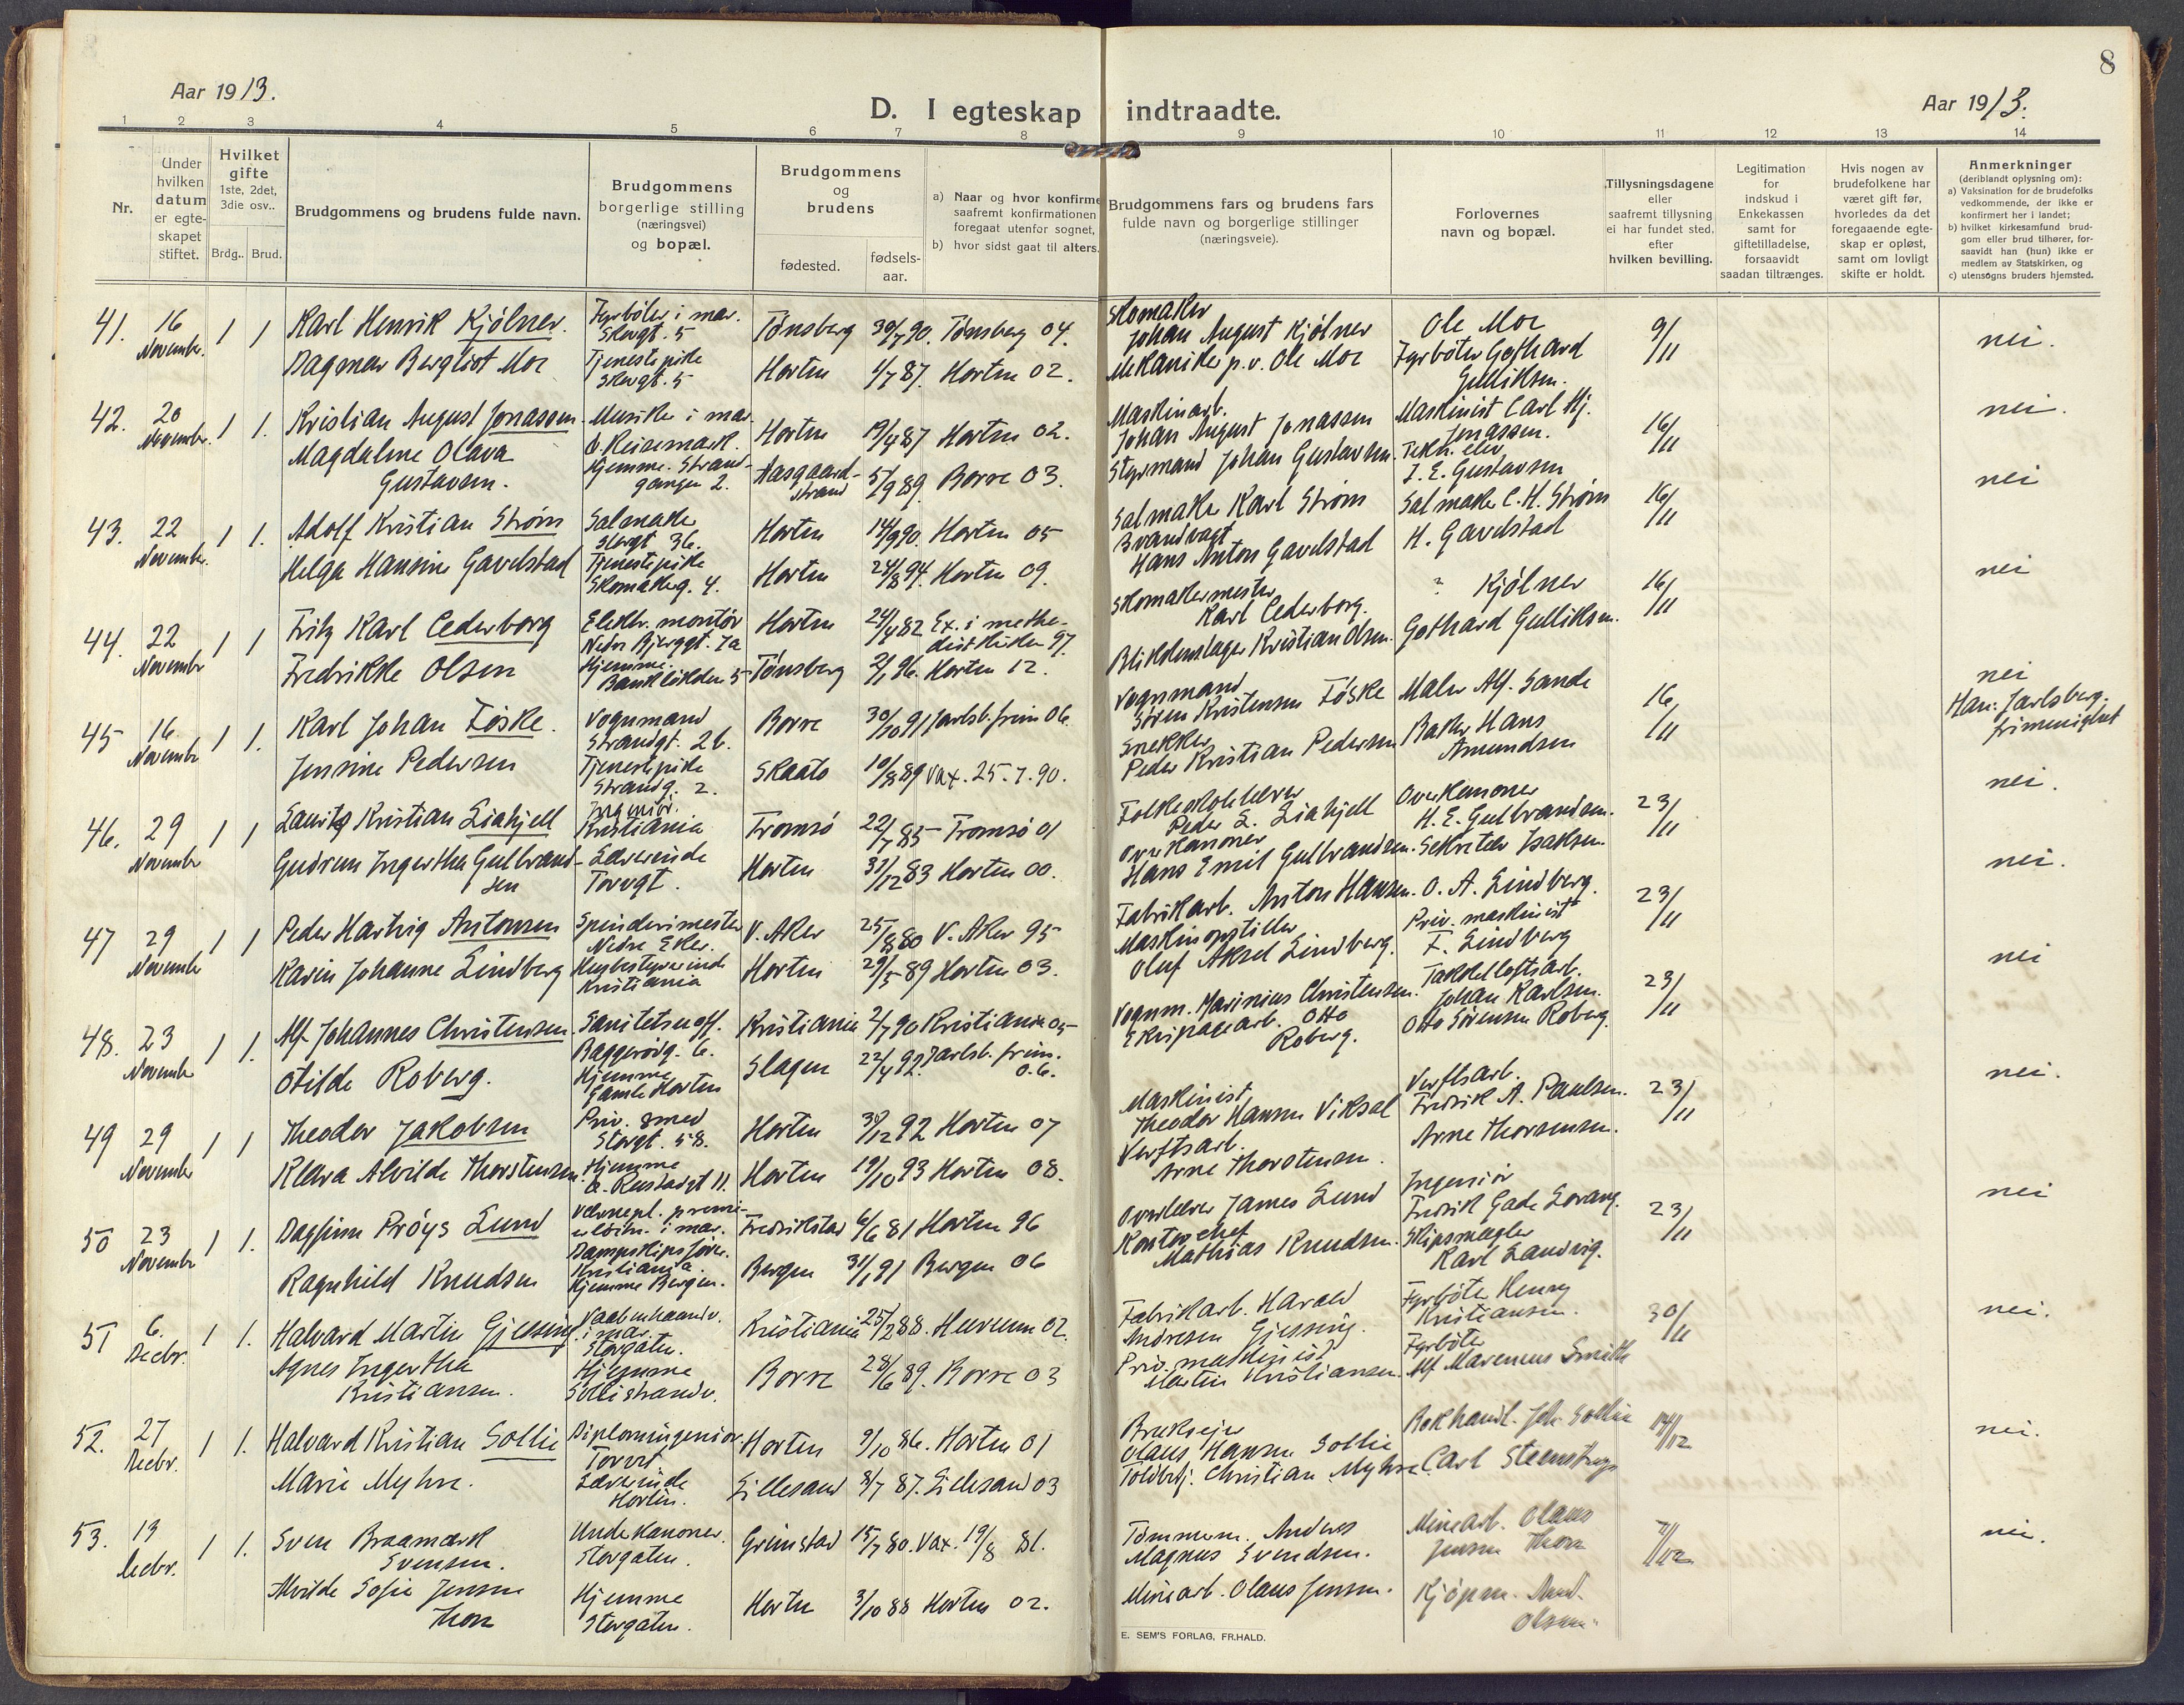 8
Aar 1913.
D. I egteskap indtraadte.
Aar 1913.
1 2 3 4 5 6 7 8 9 10 11 12 13 14
Nr.
Under hvilken datum er egte-skapet stiftet.
Hvilket gifte 1ste, 2det, 3die osv..
Brdg.. Brud.
Brudgommens og brudens fulde navn.
Brudgommens borgerlige stilling (næringsvei) og bopæl.
Brudgommens og brudens
fødested. fødsels-aar.
a) Naar og hvor konfirme
saafremt konfirmationen
foregaat utenfor sognet,
b) hvor sidst gaat til alters.
Brudgommens fars og brudens fars
fulde navn og borgerlige stillinger
(næringsveie).
Forlovernes
navn og bopæl.
Tillysningsdagene
eller
saafremt tillysning
ei har fundet sted,
efter
hvilken bevilling.
Legitimation
for
indskud i
Enkekassen
samt for
giftetilladelse,
forsaavidt
saadan tiltrænges.
Hvis nogen av
brudefolkene har
været gift før,
hvorledes da det
foregaaende egte-
skap er opløst,
samt om lovligt
skifte er holdt.
Anmerkninger
(deriblandt oplysning om):
a) Vaksination for de brudefolks
vedkommende, der ikke er
konfirmert her i landet;
b) hvilket kirkesamfund brud-
gom eller brud tilhører, for-
saavidt han (hun) ikke er
medlem av Statskirken, og
c) utensogns bruders hjemsted.
41. 16 November. 1 1 Karl Henrik Kjølner. Fyrbøter i mar. Storgt. 5 Tønsberg 30/7 90. Tønsberg 04. Skomaker Johan August Kjølner Ole Moe 9/11 nei.
Dagmar Bergliot Moe Tjenestepike Storgt. 5 Horten 4/7 87. Horten 02. Mekaniker p.v. Ole Moe Fyrbøter Gothard Gulliksen.
42. 20 November. 1 1. Kristian August Jonassen Musiker i mar. O. Keisemark. Horten 19/4 87 Horten 02. Maskinarb. Johan August Jonassen Maskinist Carl Hj. Jonassen. 16/11 nei.
Magdalene Olava Gustavsen. Hjemme. Strand-gangen 2. Aasgaard-strand 5/9 89 Borre 03. Styrmand Johan Gustavsen. Tekn. elev J. E. Gustavsen
43. 22 November. 1 1. Adolf Kristian Strøm Salmaker Storgt 36. Horten 14/9 90. Horten 05 Salmaker Karl Strøm Salmaker C. H. Strøm 16/11 nei
Helga Hansine Gavelstad Tjenestepike Skomakerg. 4. Horten 24/8 94. Horten 09. Brandvagt Hans Anton Gavelstad H. Gavelstad
44. 22 November 1 1 Fritz Karl Cederborg Elektr. montør Nedre Bjerggt. 7a Horten 24/4 82 Ex. i metho-distkirken 97. Skomakermester Karl Cederborg. ? Kjølner 16/11 nei
Fredrikke Olsen Hjemme. Bankløkken 5 Tønsberg 2/1 96. Horten 12. Blikkenslager Kristian Olsen. Gothard Gulliksen.
45 16 November 1 1. Karl Johan Føske. Vognmand Strandgt. 26. Borre 30/10 91 Jarlsb. frim 06. Vognmand Søren Kristensen Føske Maler Alf. Sande 16/11 nei Han: Jarlsberg. frimenighet
Jensine Pedersen Tjenestepike Strandg. 2. Skaatø 10/8 89 Vax. 25.7.90. Snekker Peder Kristian Pedersen Baker Hans Amundsen
46. 29 November 1 1 Lauritz Kristian Liahjell Ingeniør. Kristiania Tromsø 22/7 85 Tromsø 01 Folkeskolelærer Peder L. Liahjell Overkanoner H. E. Gulbrandsen. 23/11 nei.
Gudrun Ingertha Gulbrand-sen Lærerinde Torvgt. Horten 31/12 83 Horten 00. Overkanoner Hans Emil Gulbrandsen. Sekretær Isaksen
47 29 November 1 1 Peder Hartvig Antonsen Spinderimester Nedre Eker. V. Aker 25/8 80 V. Aker 95 Fabrikarb. Anton Hansen. O. A. Lindberg. 23/11 nei.
Karin Johanne Lindberg Husbestyrerinde Kristiania Horten 29/5 89 Horten 03. Maskinopstiller Oluf Aksel Lindberg. Priv. maskinist F. Lindberg
48. 23 November 1 1. Alf Johannes Christensen Sanitetsuoff. Baggerødg. 6. Kristiania 2/7 90 Kristiania 05 Vognm. Marinius Christensen. Takkelloftsarb. Johan Karlsen. 23/11 nei
Otilde Roberg. Hjemme Gamle Horten Slagen 22/4 92. Jarlsb. frim. 0.6. Ekvipagearb. Otto Roberg. Otto Sørensen Roberg.
49 29 November 1 1 Theodor Jakobsen Priv. smed Storgt. 58. Horten 30/12 92 Horten 07 Maskinist Theodor Hansen Viksal Verftsarb. Fredrik A. Paulsen. 23/11 nei.
Klara Alvilde Thorstensen Hjemme Horten 19/10 93 Horten 08. Verftsarb. Arne Thorstensen. Arne Thorsensen.
50 23 November 1 1. Dagfinn Prøys Lund Vernepl. premi-erløitn. i mar. Dampskipsfører. Kristiania. Fredrikstad 6/6 81 Horten 96 Overlærer James Lund Ingeniør Fredrik Gade Lorang. 23/11 nei
Ragnhild Knudsen Hjemme Bergen. Bergen 31/1 81 Bergen 06 Kontorchef Mathias Knudsen. Skipsmægler Karl Sandvig.
51 6. Decbr. 1 1. Halvard Martin Gjessing Vaabenhaandv. i mar. Storgaten. Kristiania 25/2 88. Hurum 02. Fabrikarb. Harald Andresen Gjessing. Fyrbøter Henry Kristiansen. 30/11 nei.
Agnes Ingertha Kristiansen. Hjemme Sollistrandv. Borre 28/6 89. Borre 03 Priv. maskinist Martin Kristiansen. Fyrbøter Alf Marenius Smith
52. 27 Decbr. 1 1. Halvard Kristian Sollie Diplomingeniør. Torvet Horten 9/10 86. Horten 01 Brukseier Olaus Hansen Sollie Bokhandl. Joh. Sollie 14/12 nei.
Marie Myhre. Lærerinde Horten. Lillesand 8/7 87. Lillesand 03 Toldbetj. Christian Myhre Carl Steenstrup
53. 13 Decbr. 1 1. Sven Braamark Svensen. Underkanoner. Storgaten. Grimstad 15/7 80. Vax. 19/8 81. Tømmerm. Anders Magnus Svendsen. Minearb. Olaus Jensen Thon 7/12 nei.
Alvilde Sofie Jensen Thon Hjemme Storgaten. Horten 3/10 88 Horten 02. Minearb. Olaus Jensen. Kjøpm. And. Olsen
E. SEM'S FORLAG, FR.HALD.